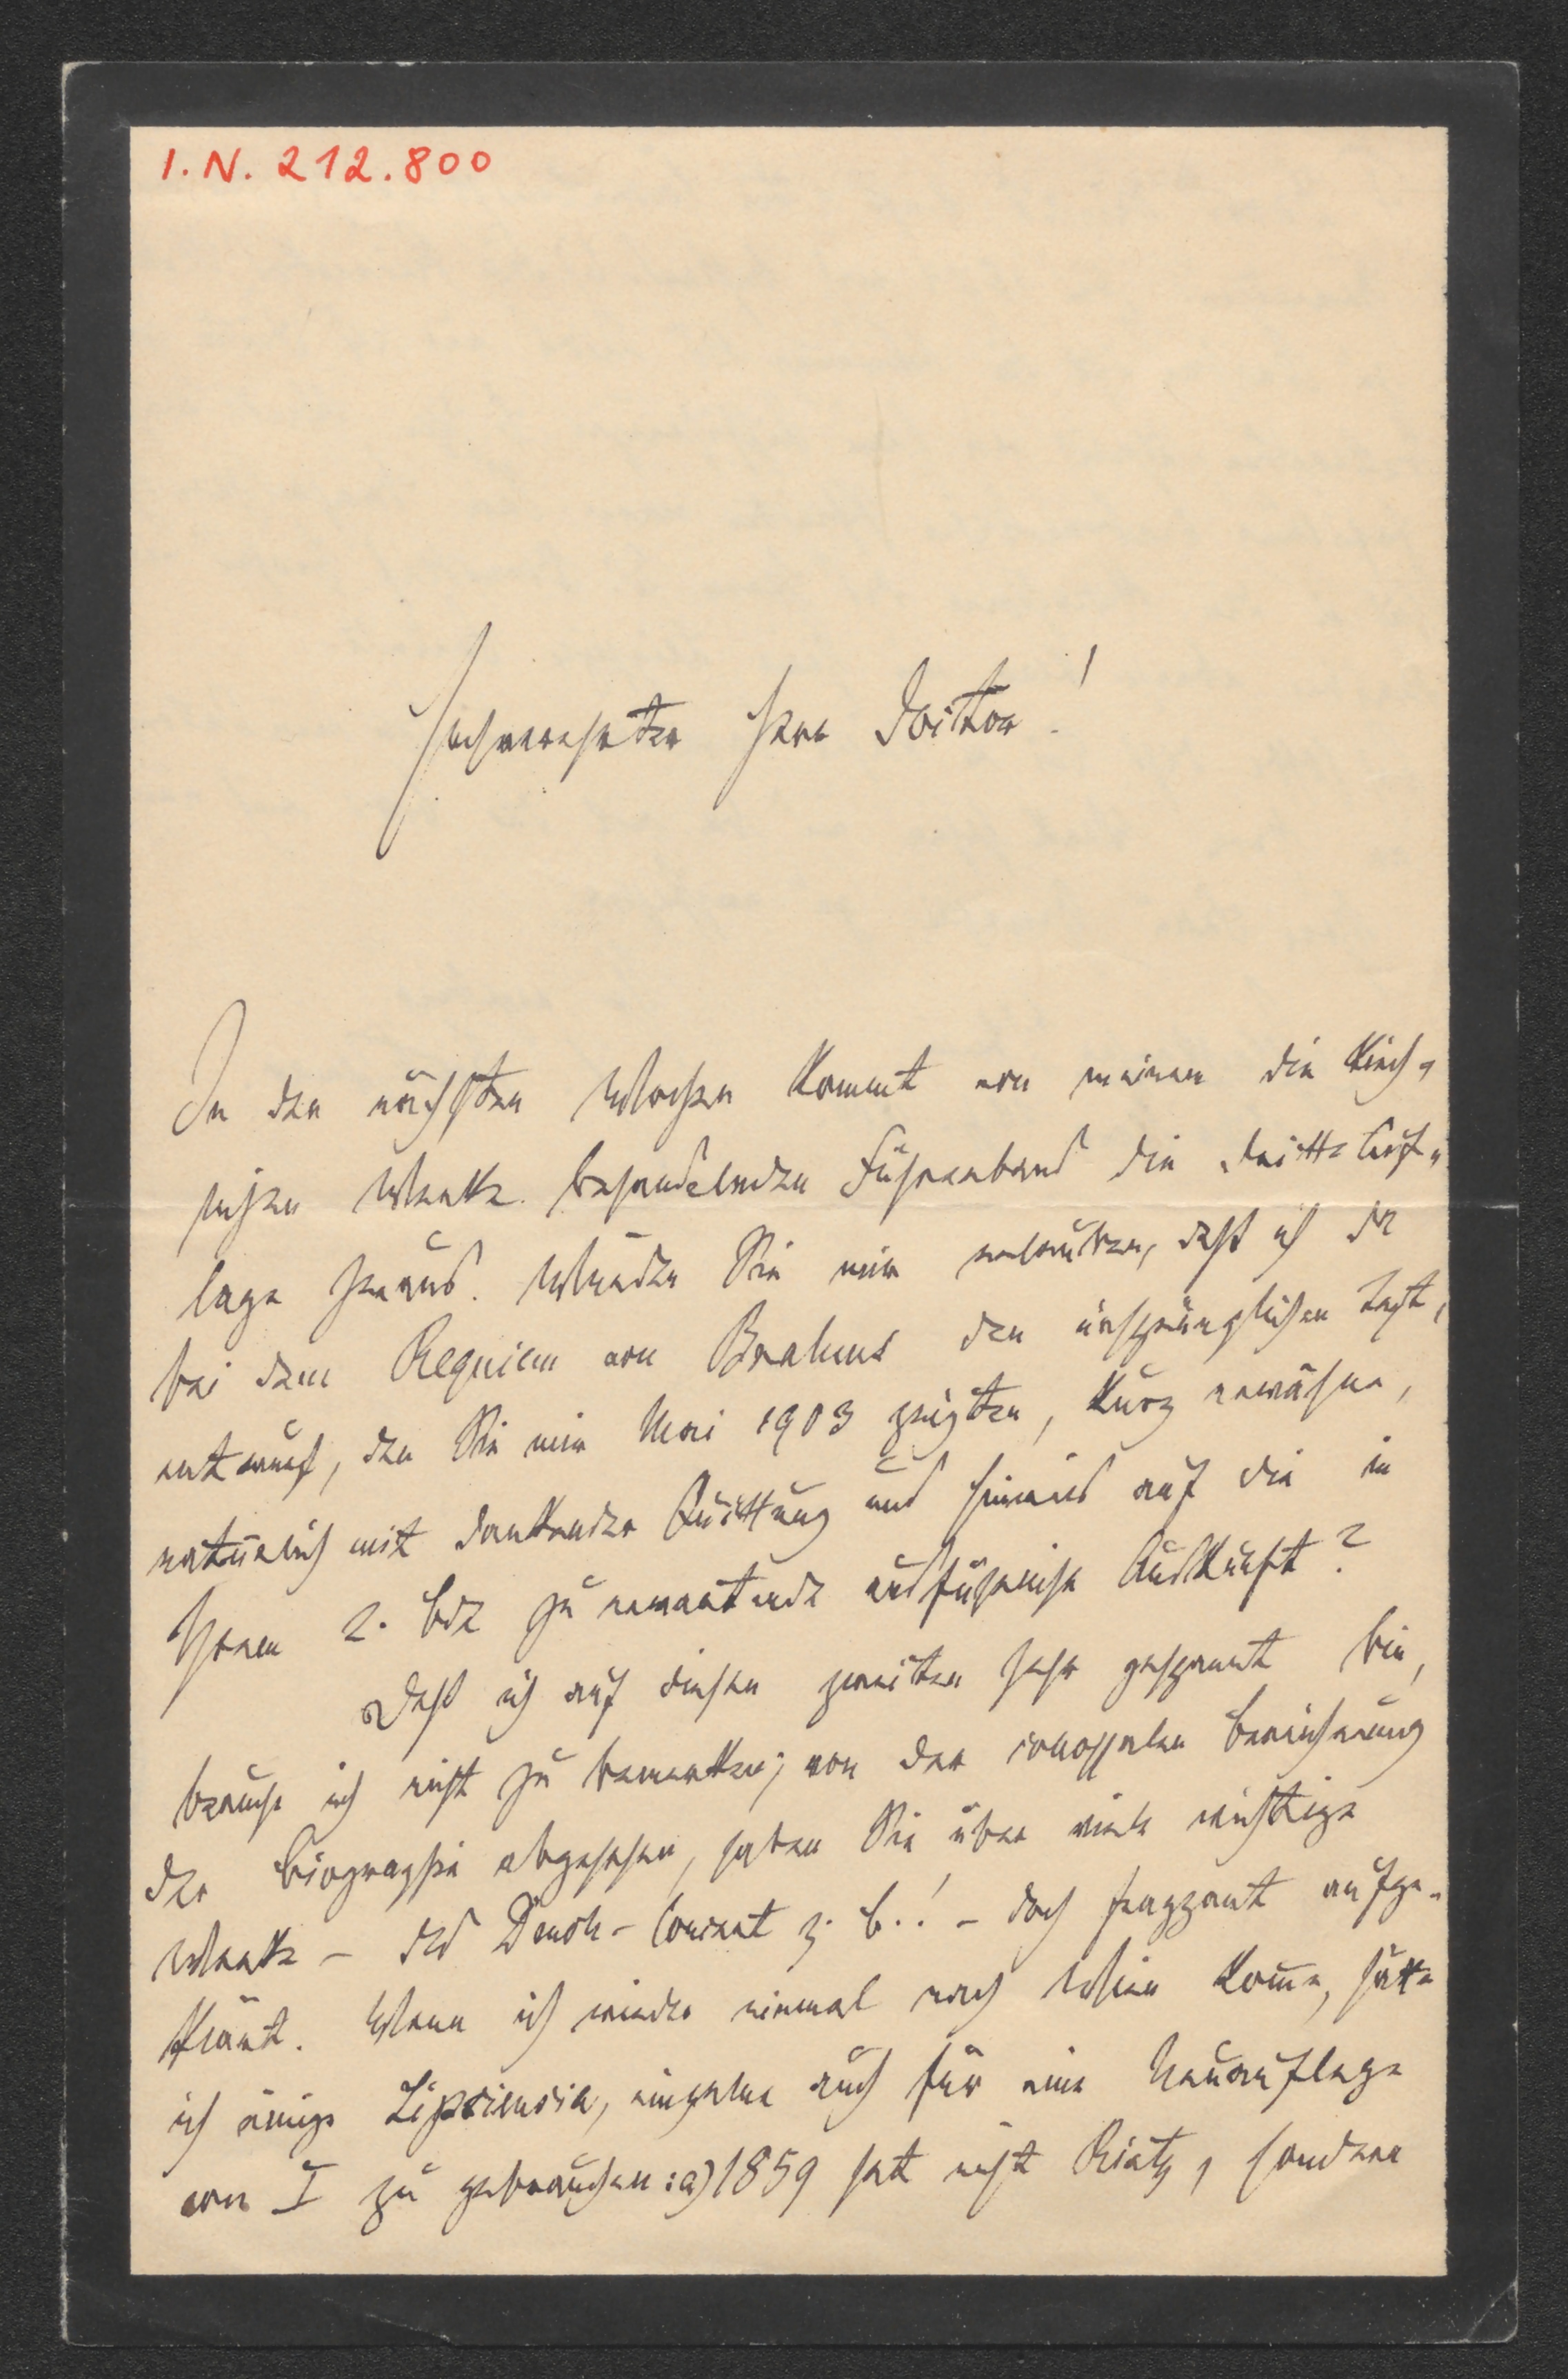 I.N. 212.800
Hochverehrter Herr Doctor!
In den nächsten Wochen kommt von meinem die kirch-
lichen Werke behandelnden Führerband die dritte Auf-
lage heraus. Würden Sie mir erlauben, daß ich da
bei dem Requiem von Brahms den ursprünglichen Text-
entwurf, den Sie mir Mai 1903 zeigten, kurz erwähne,
natürlich mit dankender Quittung und Hinweis auf die in
Ihrem 2. Bde zu erwartende ausführliche Auskunft?
Daß ich auf diesen zweiten sehr gespannt bin,
brauche ich nicht zu bemerken; von der colossalen Bereicherung
der Biographie abgesehen, haben Sie über viele wichtige
Werke – das Dmoll-Concert z. B.! – doch frappant aufge-
klärt. Wenn ich wieder einmal nach Wien komme, hätte
ich einige Lipsiensia, einzelne auch für eine Neuauflage
von I zu gebrauchen: a) 1859 hat nicht Rietz, sondern